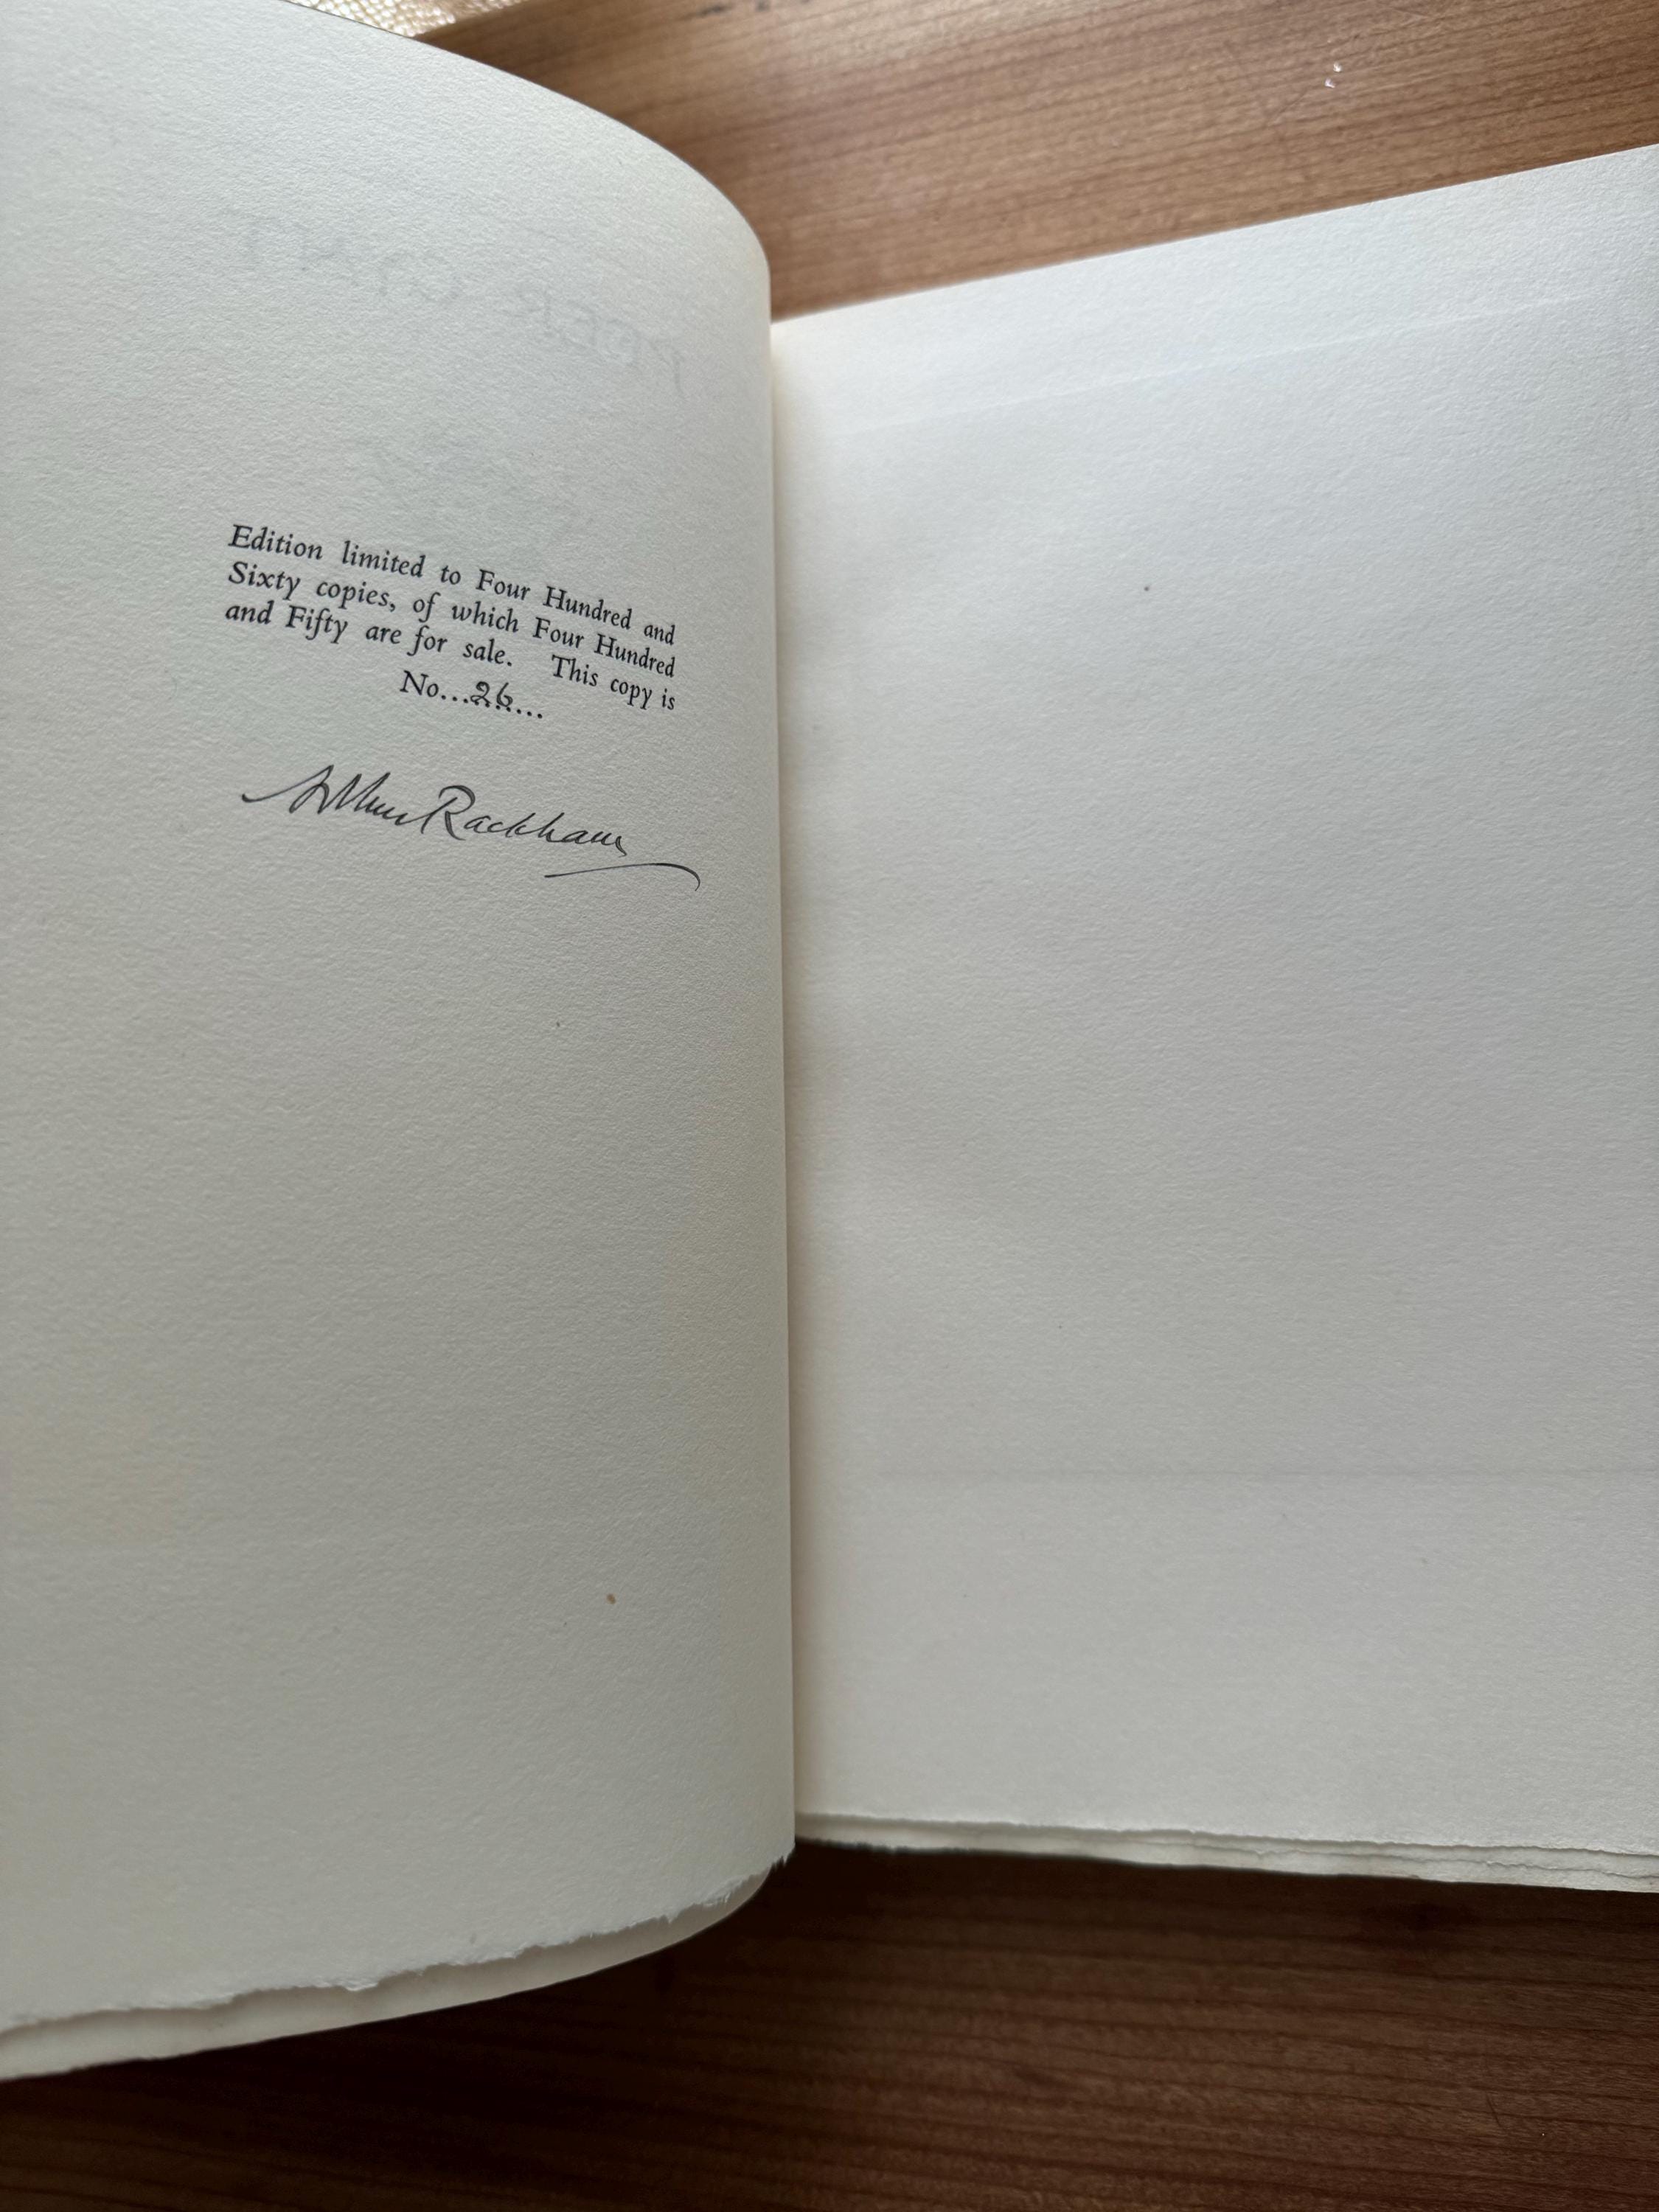 PEER GYNT
Edition limited to Four Hundred and
Sixty copies, of which Four Hundred
and Fifty are for sale. This copy is
No...26......
Arthur Rackham